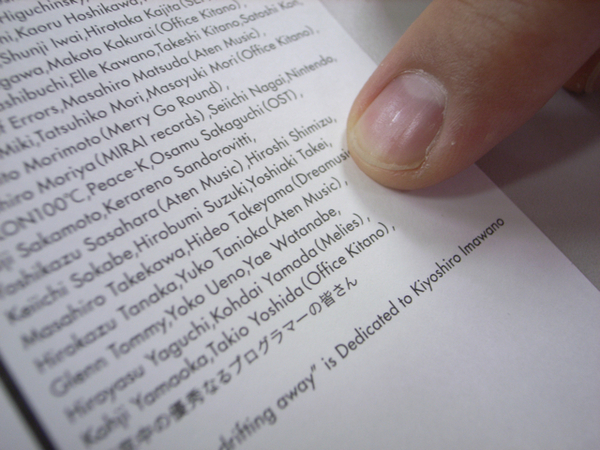 Higuchinsky,
Kaoru Hoshikawa,
Shunji Iwai,Hirotaka Kajita
Makoto Kakurai(Office Kitano),
ashibuchi,Elle Kawano,Takeshi Kitano,Satoshi Kon,
f Errors,Masahiro Matsuda(Aten Music),
Miki,Tatsuhiko Mori,Masayuki Mori(Office Kitano),
Morimoto(Merry Go Round),
hiro Moriya(MIRAI records),Seiichi Nagai,Nintendo,
ON100℃,Peace-K,Osamu Sakaguchi(OST),
ji Sakamoto,Kerareno Sandorovitti,
Yoshikazu Sasahara(Aten Music),Hiroshi Shimizu,
Keiichi Sokabe,Hirobumi Suzuki,Yoshiaki Takei,
Masahiro Takekawa,Hideo Takeyama(Dreamusic
Hirokazu Tanaka,Yuko Tanioka(Aten Music),
Glenn Tommy,Yoko Ueno,Yae Watanabe,
Hirayasu Yaguchi,Kohdai Yamada(Melies),
Kohji Yamaoka,Takio Yoshida(Office Kitano),
中の優秀なるプログラマーの皆さん
drifting away" is Dedicated to Kiyoshiro Imawano